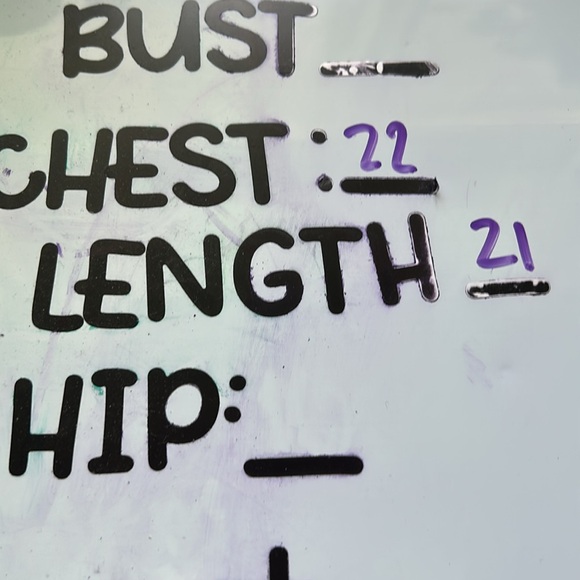 BUST__
CHEST: 22
LENGTH 21
HIP:__